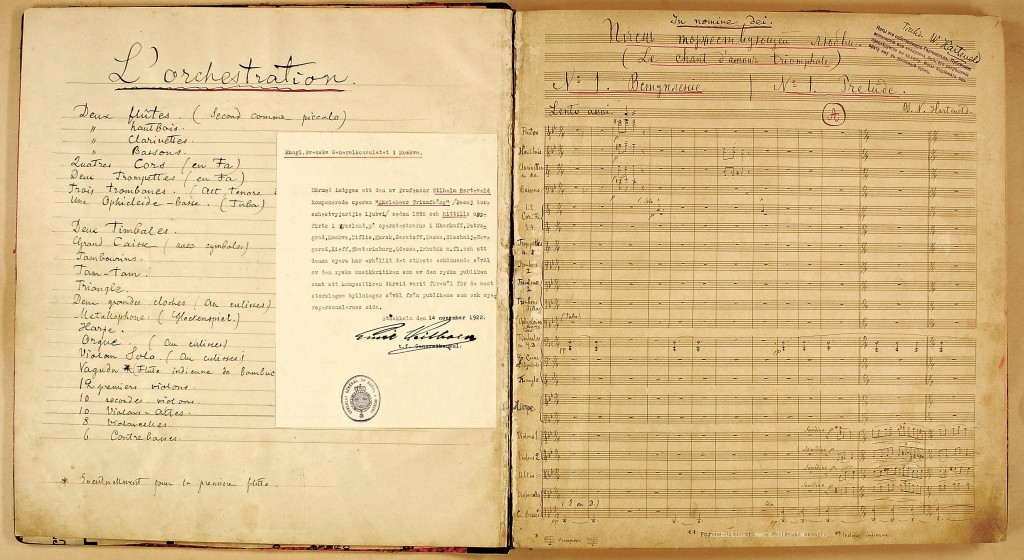 L'orchestration.
Deux flûtes (Second comme piccolo)
" hautbois.
" Clarinettes.
" Bassons.
Quatres Cors (en Fa)
Deux Trompettes (en Fa)
Trois trombones. (Alt, tenore
Une Ophicleide-basse. (Tuba)
Deux Timbales.
Grand Caisse (avec cymbales)
Tambourins.
Tam-tam.
Triangle.
Deux grandes cloches (au culisses)
Metallophone. (Glockenspiel.)
Harfe.
Orgue. (Au culisses)
Violon Solo. (Au culisses)
(Flûte indienne de bambuc
12 premiers violons.
10 secondes violons.
10 Violons-altes.
8 violoncelles
6 Contrebasses.
* Eventuellement pour la première flûte.
Kungl. Svenska Generalkonsulatet i Moskva.
Härmed intygas att den av Professor Wilhelm Harteveld
komponerade operan "Kärlekens Triumfsång" /Pesnj tor-
schestvujustjije ljubvi/ sedan 1895 och hittills upp-
förts i Ryssland, på operateatrarna i Charkoff, Petro-
grad, Moskva, Tiflis, Kursk, Saratoff, Kasan, Nischnij-Nov-
gorod, Kieff, Ekaterinburg, Odessa, Irkutsk m.fl. och att
denna opera har erhållit det största erkännande såväl
av den ryska musikkritiken som av den ryska publiken
samt att kompositören därvid varit föremål för de mest
storslagna hyllningar såväl från publikens som och ope-
rapersonalernas sida.
Stockholm den 14 november 1922.
t.f. Generalkonsul.
In nomine Dei.
Пѣснь торжествующей любви.
(Le chant d'amour triomphale)
W. Harteveld
Nº 1. Вступленіе | Nº 1. Prelude.
Lento assai.
A
W. N. Harteveld
Flûtes
Hautbois
Clarinettes
Bassons
1.2.
Cor. Fa
3.4.
Trompettes
Trombone
Trombone
Trombone
(Tuba)
Timbales
Gr. Caisse
Triangle
Harpe
Violons 1
Violons 2
Altos
Violoncelle
C. Bassi